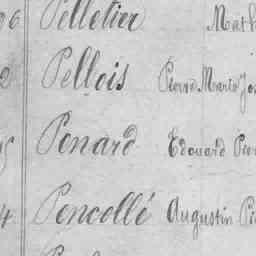 96 Pelletier Math
2 Pellois Pierre Marie Jos
Penard Edouard Pier
4 Pencollé Augustin Pi